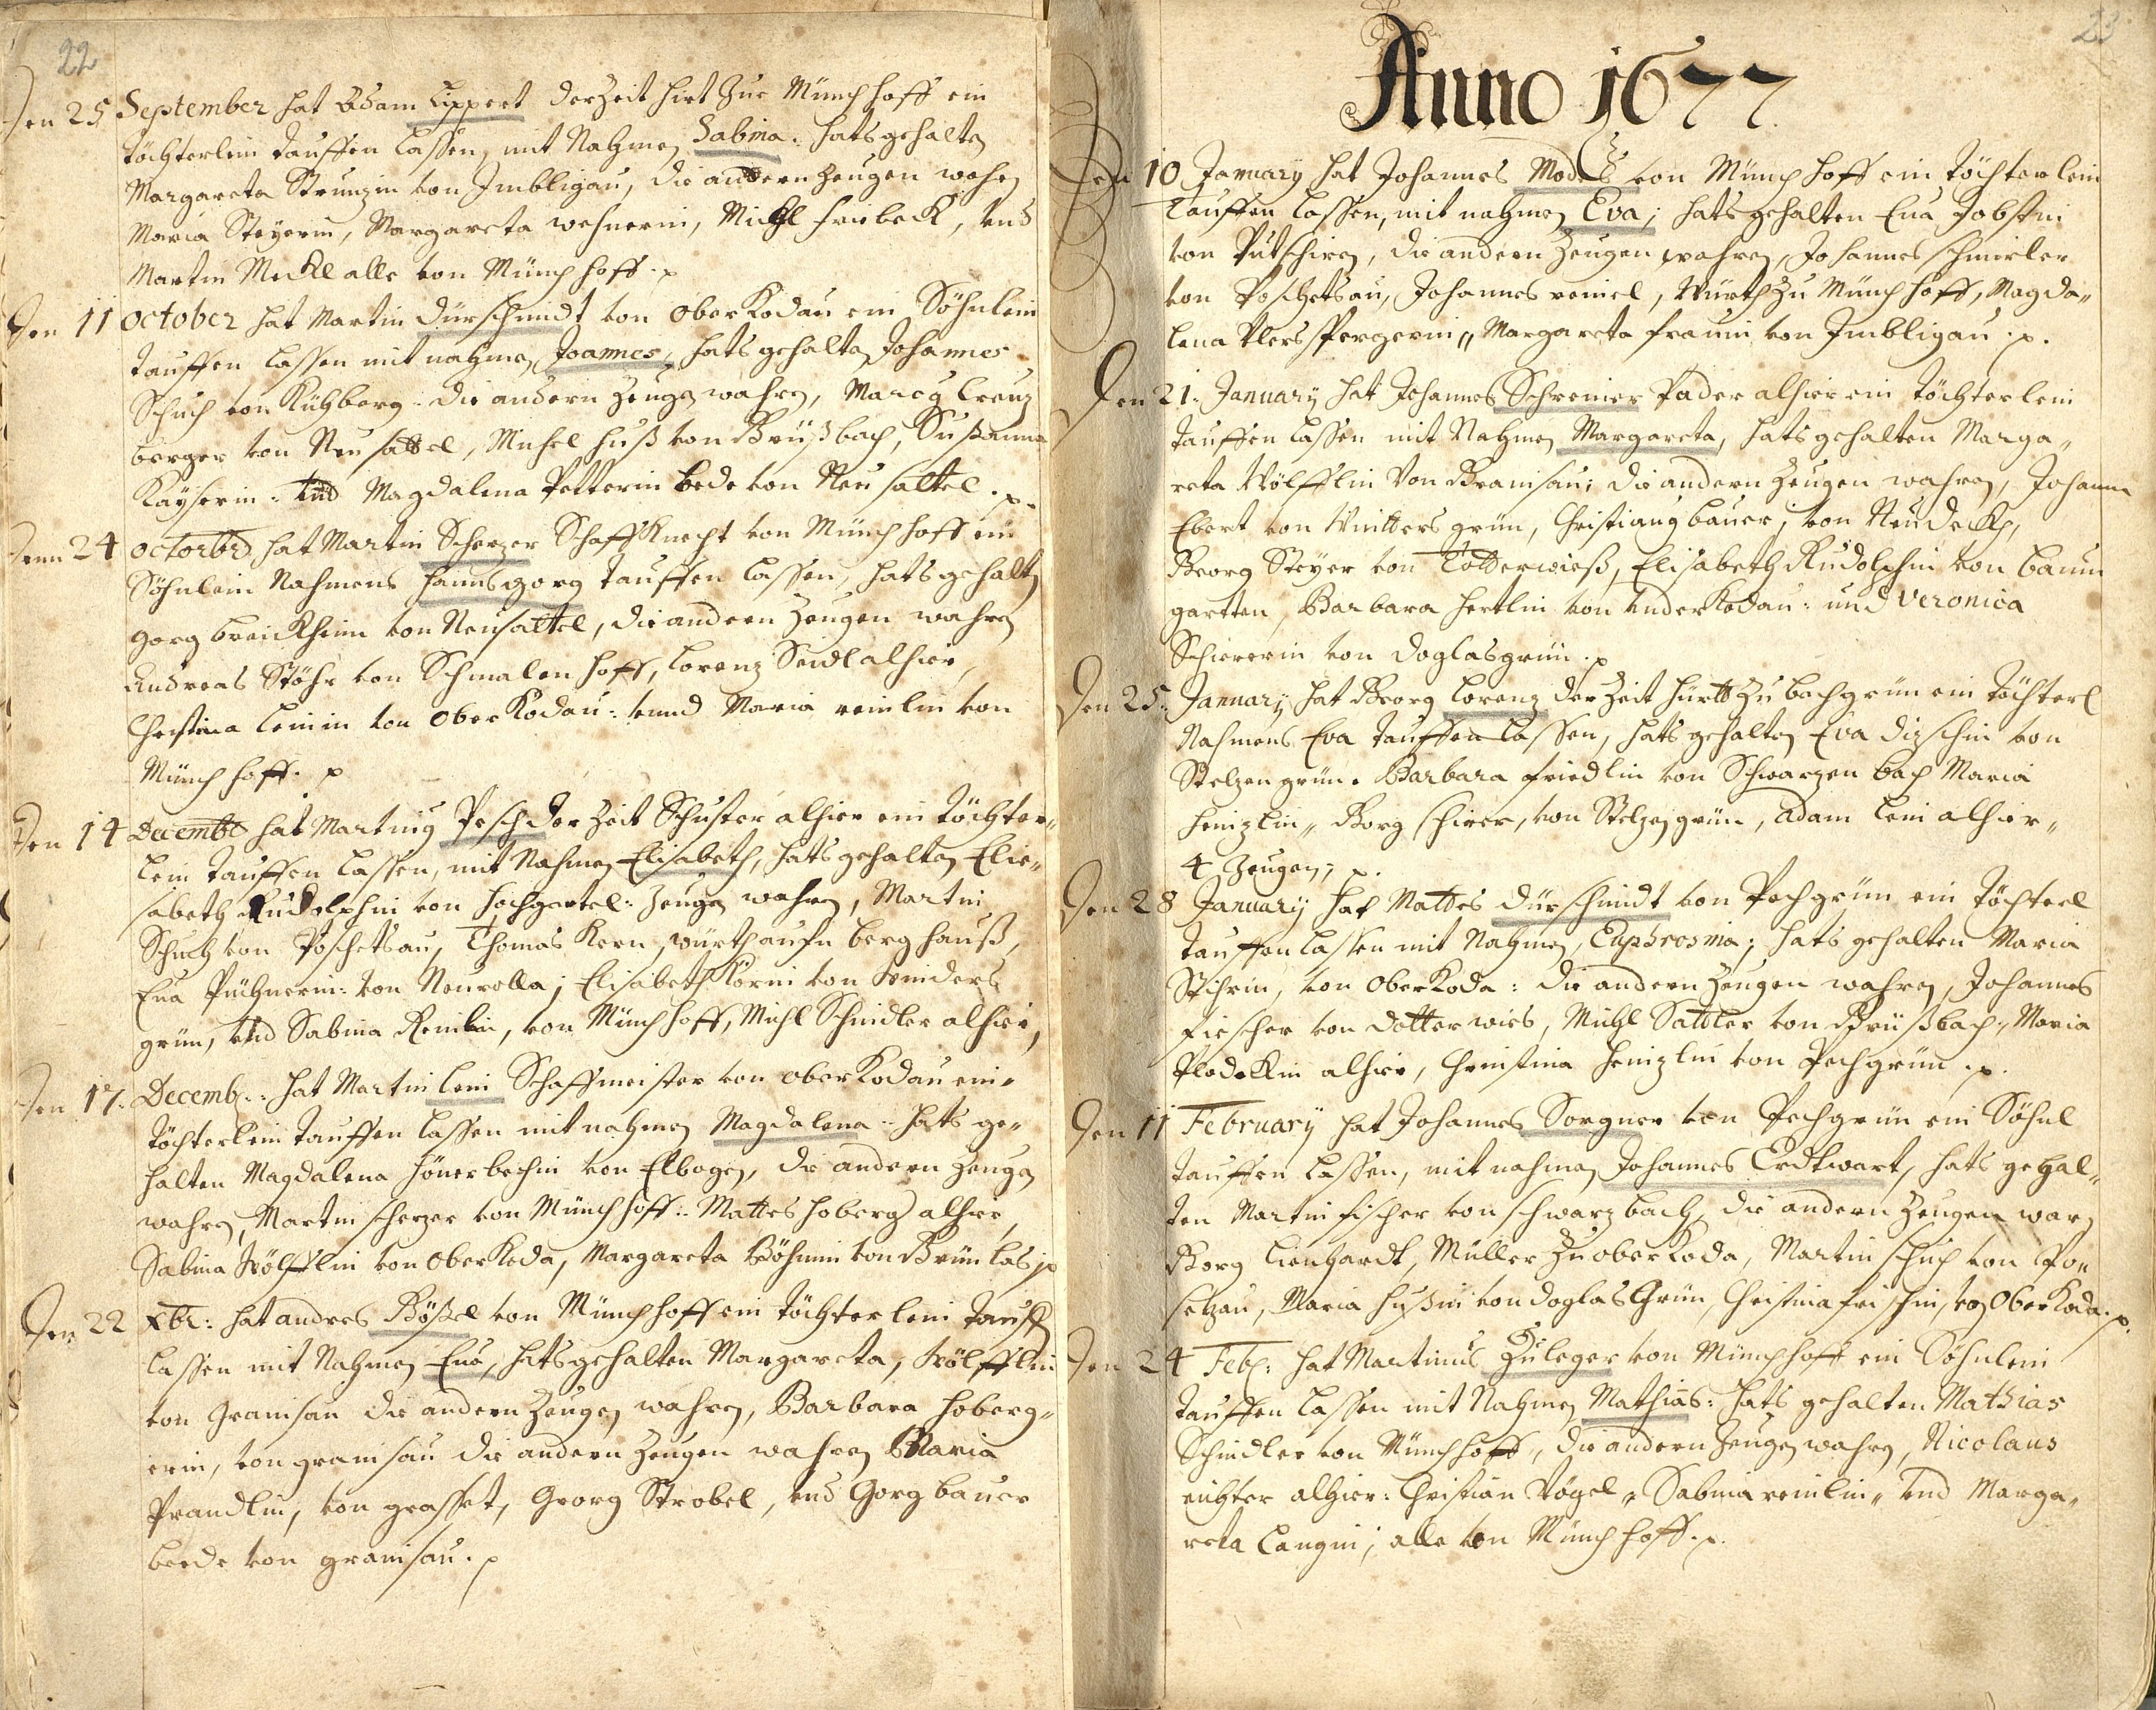 22
Den 25 September hat Adam Lippert derzeit hirt Zue Münchhoff ein
töchterlein tauffen lassen, mit Nahmen Sabina. hats gehalten
Margareta Strunzin von Imbligau, die andern zeugen wahren
Maria Steyerin, Margareta wehnerin, Michl friebeck, vnd
Martin Meckl alle von Münchhoff. p
Den 11 October hat Martin dürschmidt von Ober Kodau ein Söhnlein
tauffen lassen mit nahmen Joannes, hats gehalten Johannes
Schuch von Kühberg: die andern zeugen wahren, Marcg Creuz
berger von Neusattel, Michel Huß von Brüßbach, Susanna
Kayserin: vnd Magdalena Petterin bede von Neusattel. p.
Denn 24 octorbr. hat Martin Scherzer Schaffknecht von Münchhoff ein
Söhnlein Nahmens hannsgorg tauffen lassen, hats gehalten
gorg von Neusattel, die andern zeugen wahren
Andreas Stöhr von Schmalenhoff, Lorenz Seidl alhier,
Christina Leinin von Ober Kodau: vnnd Maria reinlin von
Münchhoff. p
Den 14 Decembr hat Marting Pesch der zeit Schuster alhier ein töchter„
lein tauffen lassen, mit Nahmen Elisabeth, hats gehalten Elie„
sabeth Rudolphin von hochgartel: zeugen wahren, Martin
Schuch von Poschetsau, Thomas Kern, würth aufn berghauß,
Eua Püchnerin: von Neurolla; Elisabeth Körin von Winders
grün, vnd Sabina Reinlin, von Münchhoff, Michl Schindler alhier,
Den 17. Decemb.: hat Martin Lein Schaffmeister von Ober Kodau ein„
töchterlein tauffen lassen mit nahmen Magdalena: hats ge„
halten Magdalena hönerbechin von Elbogen, die andern zeugen
wahren, Martin scherzer von Münchhoff: Mattes hoberg alhier,
Sabina Wölfflin von Ober Koda, Margareta Böhmin von Grünlas p
Den 22 Xbr: hat andres Bößel von Münchhoff ein töchterlein tauffen
lassen mit Nahmen Eua, hats gehalten Margareta, Wölfflin
von Granisau die andern zeugen wahren, Barbara hoberg„
erin, von granisau die andern zeugen wahren Maria
Prandlin, von grasset, Georg Strobel, vnd Gorg bauer
beede von granisau. p
23
Anno 1677
Den 10 January hat Johannes Modes von Münchhoff ein töchterlein
tauffen lassen, mit nahmen Eva; hats gehalten Eua Jobstin
von Putschiren, die andern zeugen wahren, Johannes schmirler
von Poschetsau, Johannes reinel, Würth zu Münchhoff, Magda„
lena Plersspergerin„ Margareta fraunin von Imbligau. p.
Den 21. January hat Johannes Schreiner Pader alhier ein töchterlein
tauffen lassen mit Nahmen Margareta, hats gehalten Marga„
reta Wölfflin Von Granisau; die andern zeugen wahren, Johann
Ebert von Wintersgrün, Christiang bauer, von Neudeckh,
Georg Steyer von Totterwieß, Elisabeth Rudolphin von baum
gartten, Barbara hertlin von vnder Kodau: und Veronica
Schirerin von doglasgrün. p
Den 25: January hat Georg Lorenz der zeit hürtt zu bochgrün ein töchterl
Nahmens Eva tauffen lassen, hats gehalten Eva dizschin von
Stelzengrün. Barbara friedlin von Schwarzenbach Maria
heinzlin„ Gorg schirer, von Stelzengrün, Adam Lein alhier„
4 Zeugen; p.
Den 28 January hat Mattes dürschmidt von Pechgrün ein töchterl
tauffen lassen mit Nahmen, Euphrosina; hats gehalten Maria
Stihrin, von Ober Koda: die andern zeugen wahren, Johannes
fiescher von dotterwies, Michl Sattler von Brüßbach, Maria
Plodekin alhier, Christina heinzlin von Pechgrün. p.
Den 11 February hat Johannes Sorgner von Pechgrün ein Söhnl
tauffen lassen, mit nahmen Johannes Erdtwart, hats gehal„
ten Martin fischer von schwarzbach, die andern zeugen waren
Gorg Lienhardt, Müller zu Ober Koda, Martin schuch von Po„
schezau, Maria hußin von doglas Grün, Christina frischin, von Ober Koda. p.
Den 24 Feb: hat Martinus Zuleger von Münchhoff ein Söhnlein
tauffen lassen mit Nahmen Mathias: hats gehalten Mathias
Schindler von Münchhoff„ die andern zeugen wahren, Nicolaus
richter alhier: Christian Vogel„ Sabina reinlin„ vnd Marga„
reta Langin; alle von Münchhoff. p.